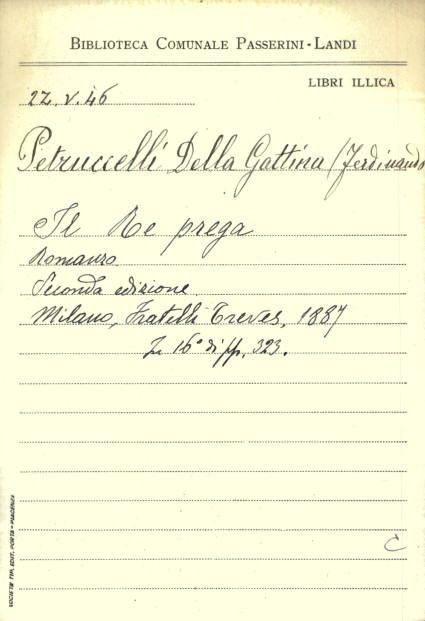 BIBLIOTECA COMUNALE PASSERINI-LANDI
LIBRI ILLICA
22.V.46
Petruccelli Della Gattina (Ferdinando
Il Re prega
Romanzo
Seconda edizione
Milano, Fratelli Treves, 1887
In 16° di pp. 323.
C
SOCIETÀ TIP. EDIT. PORTA - PIACENZA